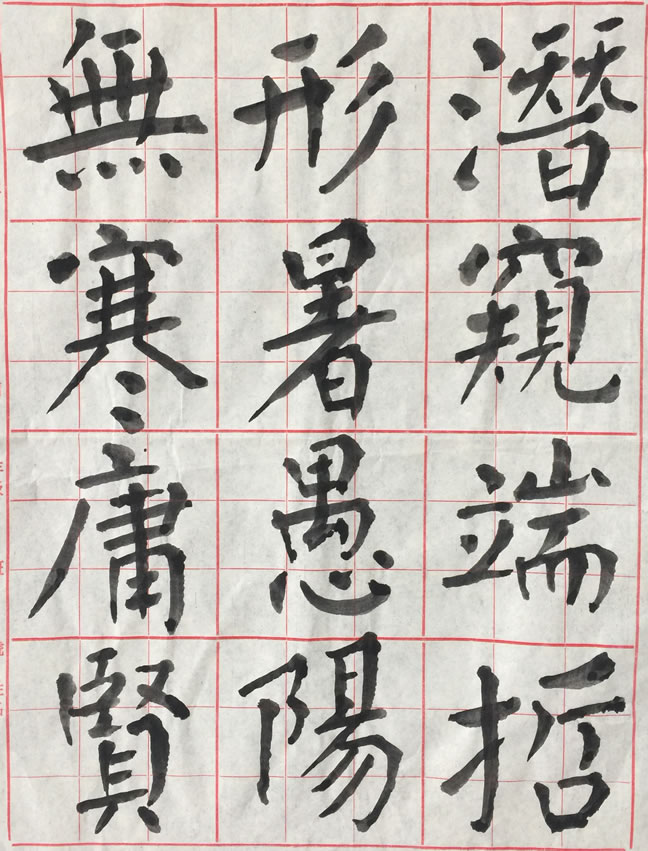 潛窺端哲
形暑愚陽
無寒庸賢